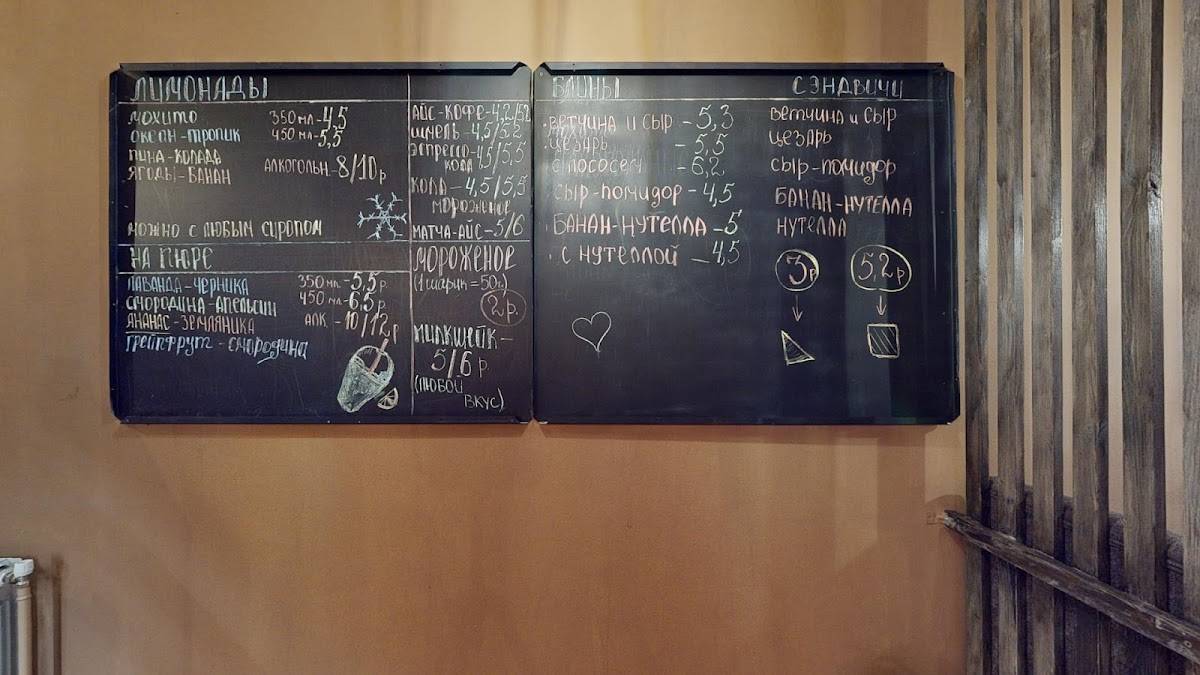 ЛИМОНАДЫ
МОХИТО 350 МЛ-4,5
ОКЕАН-ТРОПИК 450 МЛ-5,5
ПИНА-КОЛАДЬ
ЯГОДЫ-БАНАН АЛКОГОЛЬН-8/10 р
МОЖНО С ЛЮБЫМ СИРОПОМ
НА ПЮРЕ
ЛАВАНДА-ЧЕРНИКА 350 МЛ-5,5р.
СМОРОДИНА-АПЕЛЬСИН 450 МЛ-6,5р.
АНАНАС-ЗЕМЛЯНИКА АЛК.-10/12 р
ГРЕЙПФРУТ-СМОРОДИНА
АЙС-КОФЕ-4,2/5,2
ШМЕЛЬ-4,5/5,2
ЭСПРЕССО-4,5/5,5
КОЛА
КОЛА-4,5/5,5
МОРОЖЕНОЕ
МАТЧА-АЙС-5/6
МОРОЖЕНОЕ
(1 шарик=50г)
2р.
МИЛКШЕЙК-
5/6 р.
(ЛЮБОЙ
ВКУС)
БЛИНЫ
ВЕТЧИНА И СЫР - 5,3
ЦЕЗАРЬ - 5,5
С ЛОСОСЕМ - 6,2
СЫР-ПОМИДОР - 4,5
БАНАН-НУТЕЛЛА - 5
С НУТЕЛЛОЙ - 4,5
СЭНДВИЧИ
ВЕТЧИНА И СЫР
ЦЕЗАРЬ
СЫР-ПОМИДОР
БАНАН-НУТЕЛЛА
НУТЕЛЛА
3р 5,2р